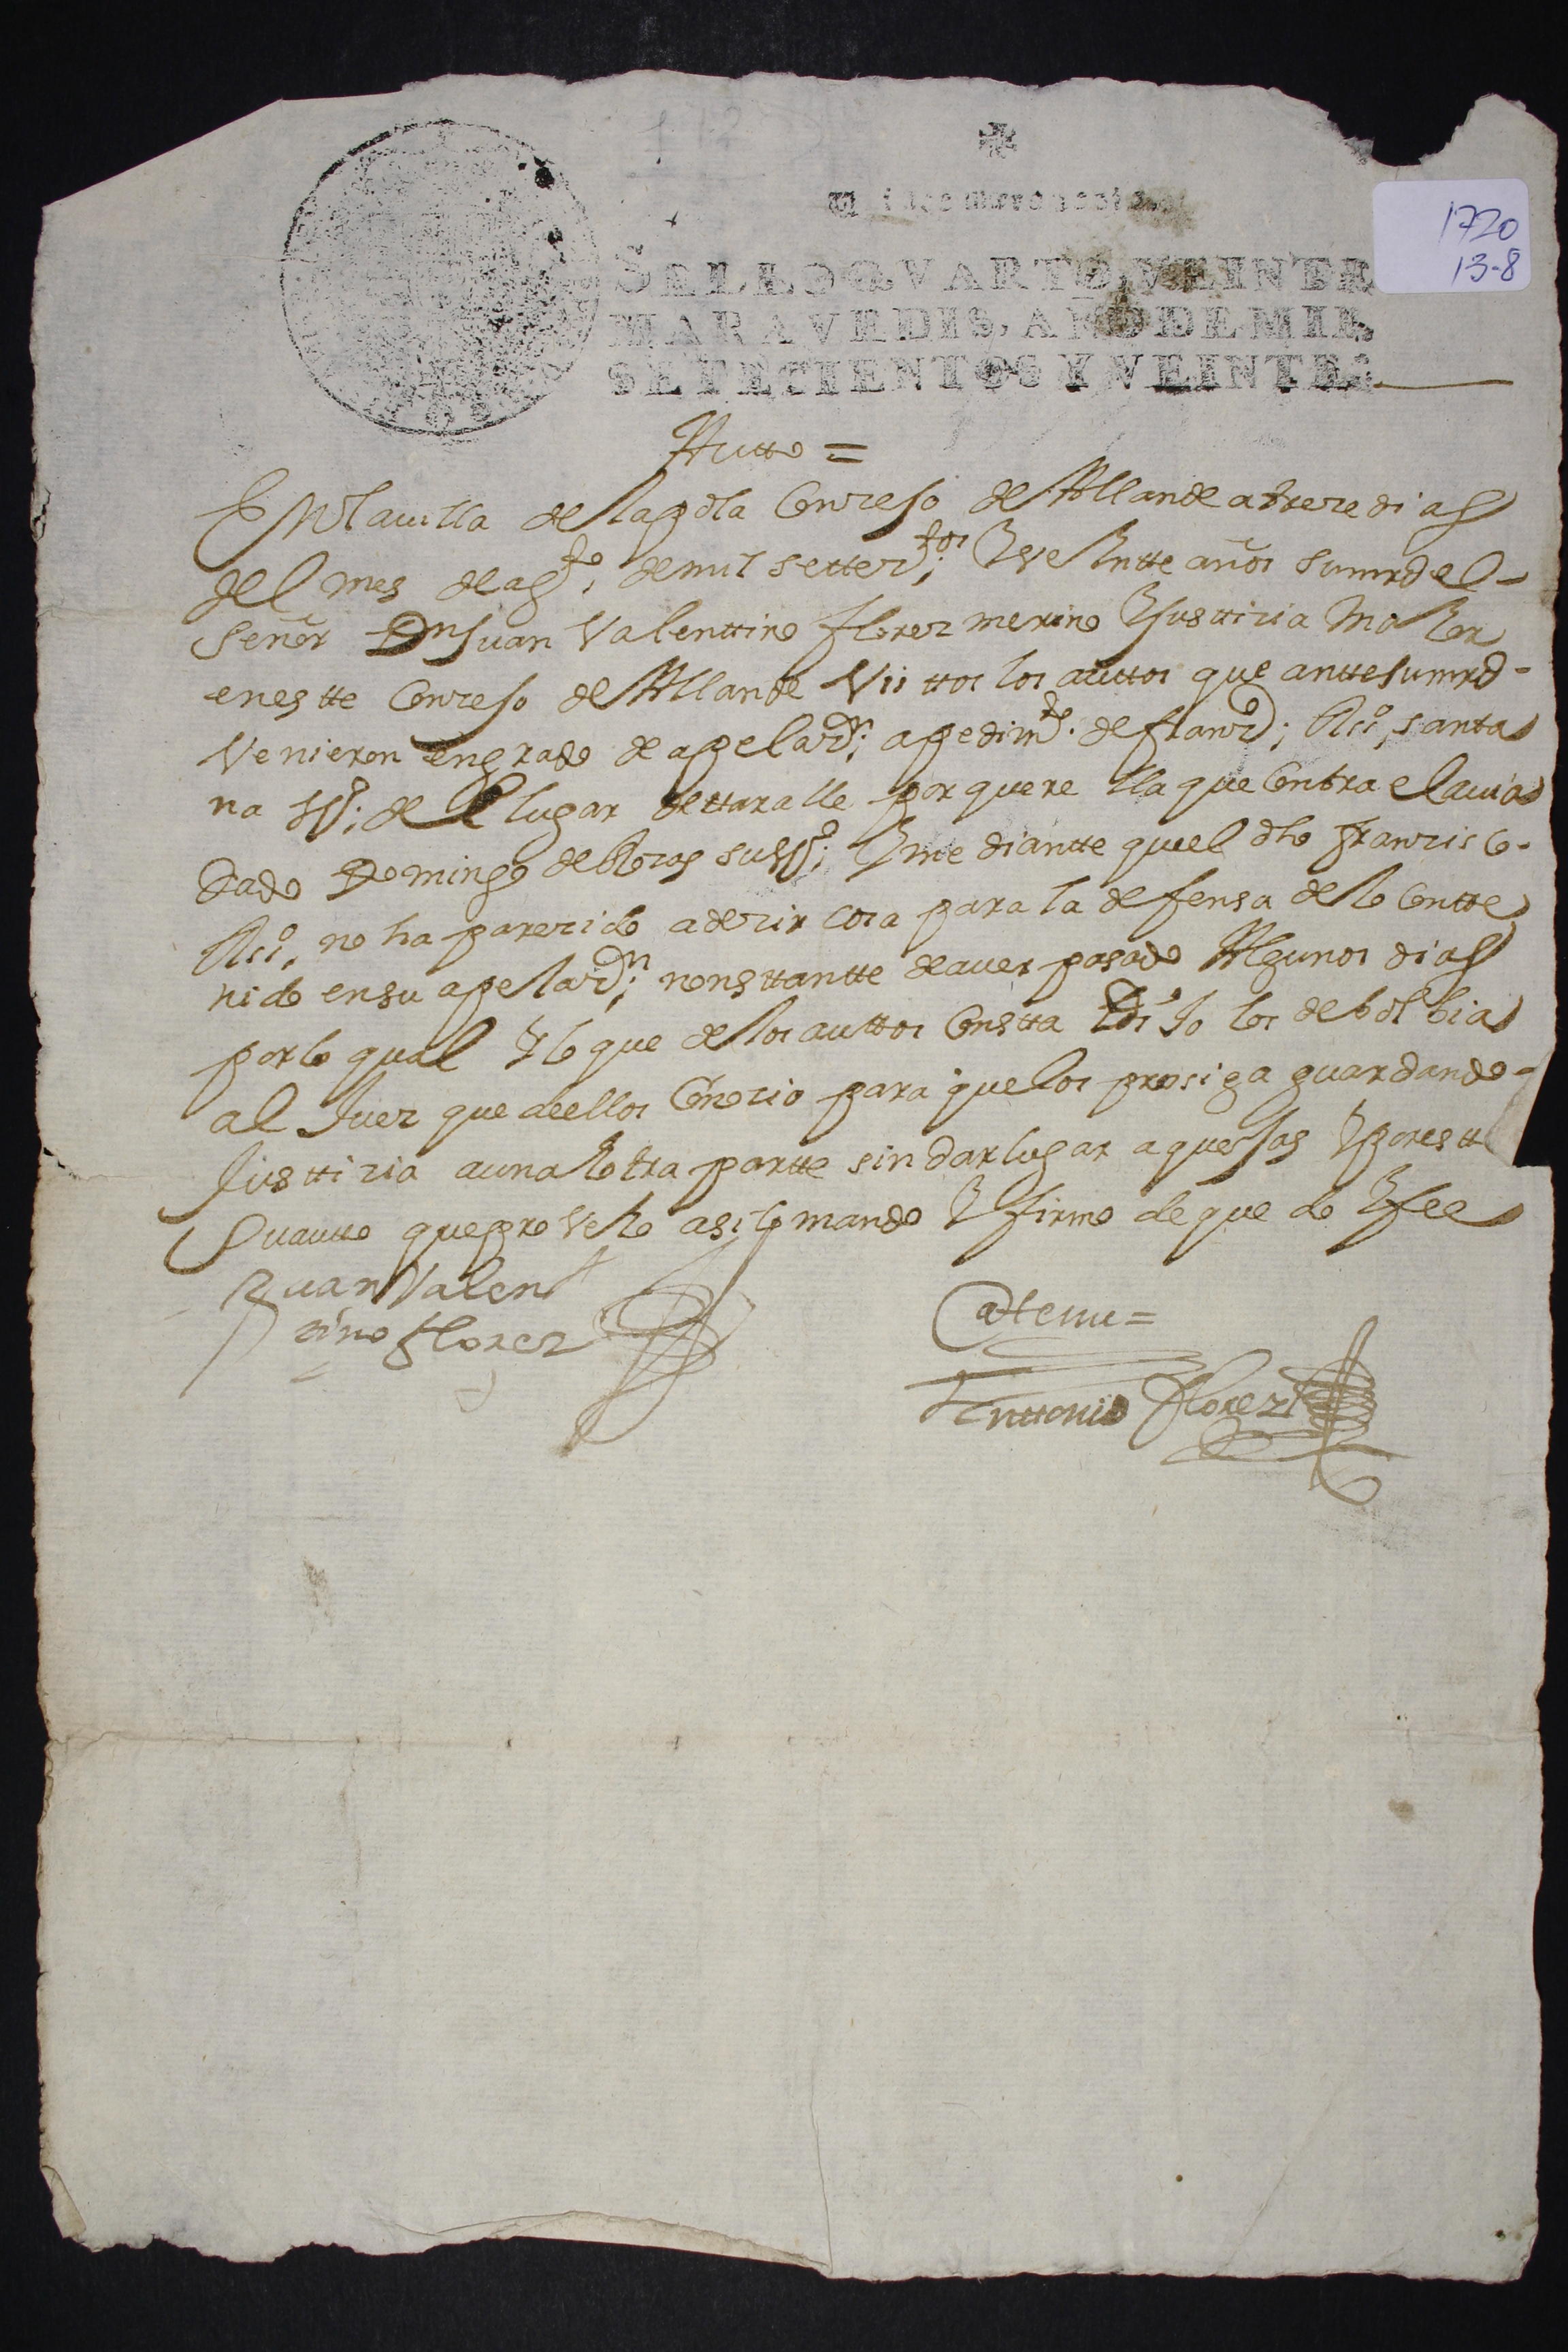 1720
13-8
SELLO QVARTO, VEINTE
MARAVEDIS, AÑO DE MIL
SETECIENTOS Y VEINTE.
Autto =
En la villa de la pola Conzejo de Allande a treze dias
del mes de agto. de mil setteztos; y veintte años su mrd el
señor Dn Juan Valenttino florez merino y justtizia maior
en estte Conzejo de Allande Vistos los auttos que antte su mrd
Venieron en grado de apelazn; a pedimto. de franzo;
na vo; de el lugar de ttaralle por querella que Contra el avia
dado Domingo de su vo; y mediantte que el dho franzisco
no ha parezido a dezir cosa para la defensa de lo Contte
nido en su apelazn; no nsttantte de aver pasado Algunos dias
por lo qual y lo que de los auttos Constta Dijo los debolbia
al Juez que de ellos Conozio para que los prosiga guardando
Justtizia a una y otra partte sin dar lugar a quejas y por estte
su autto que proveio asi lo mando y firmo de que doy fee
Juan Valen
tino florez
Antemi =
Anttonio florez